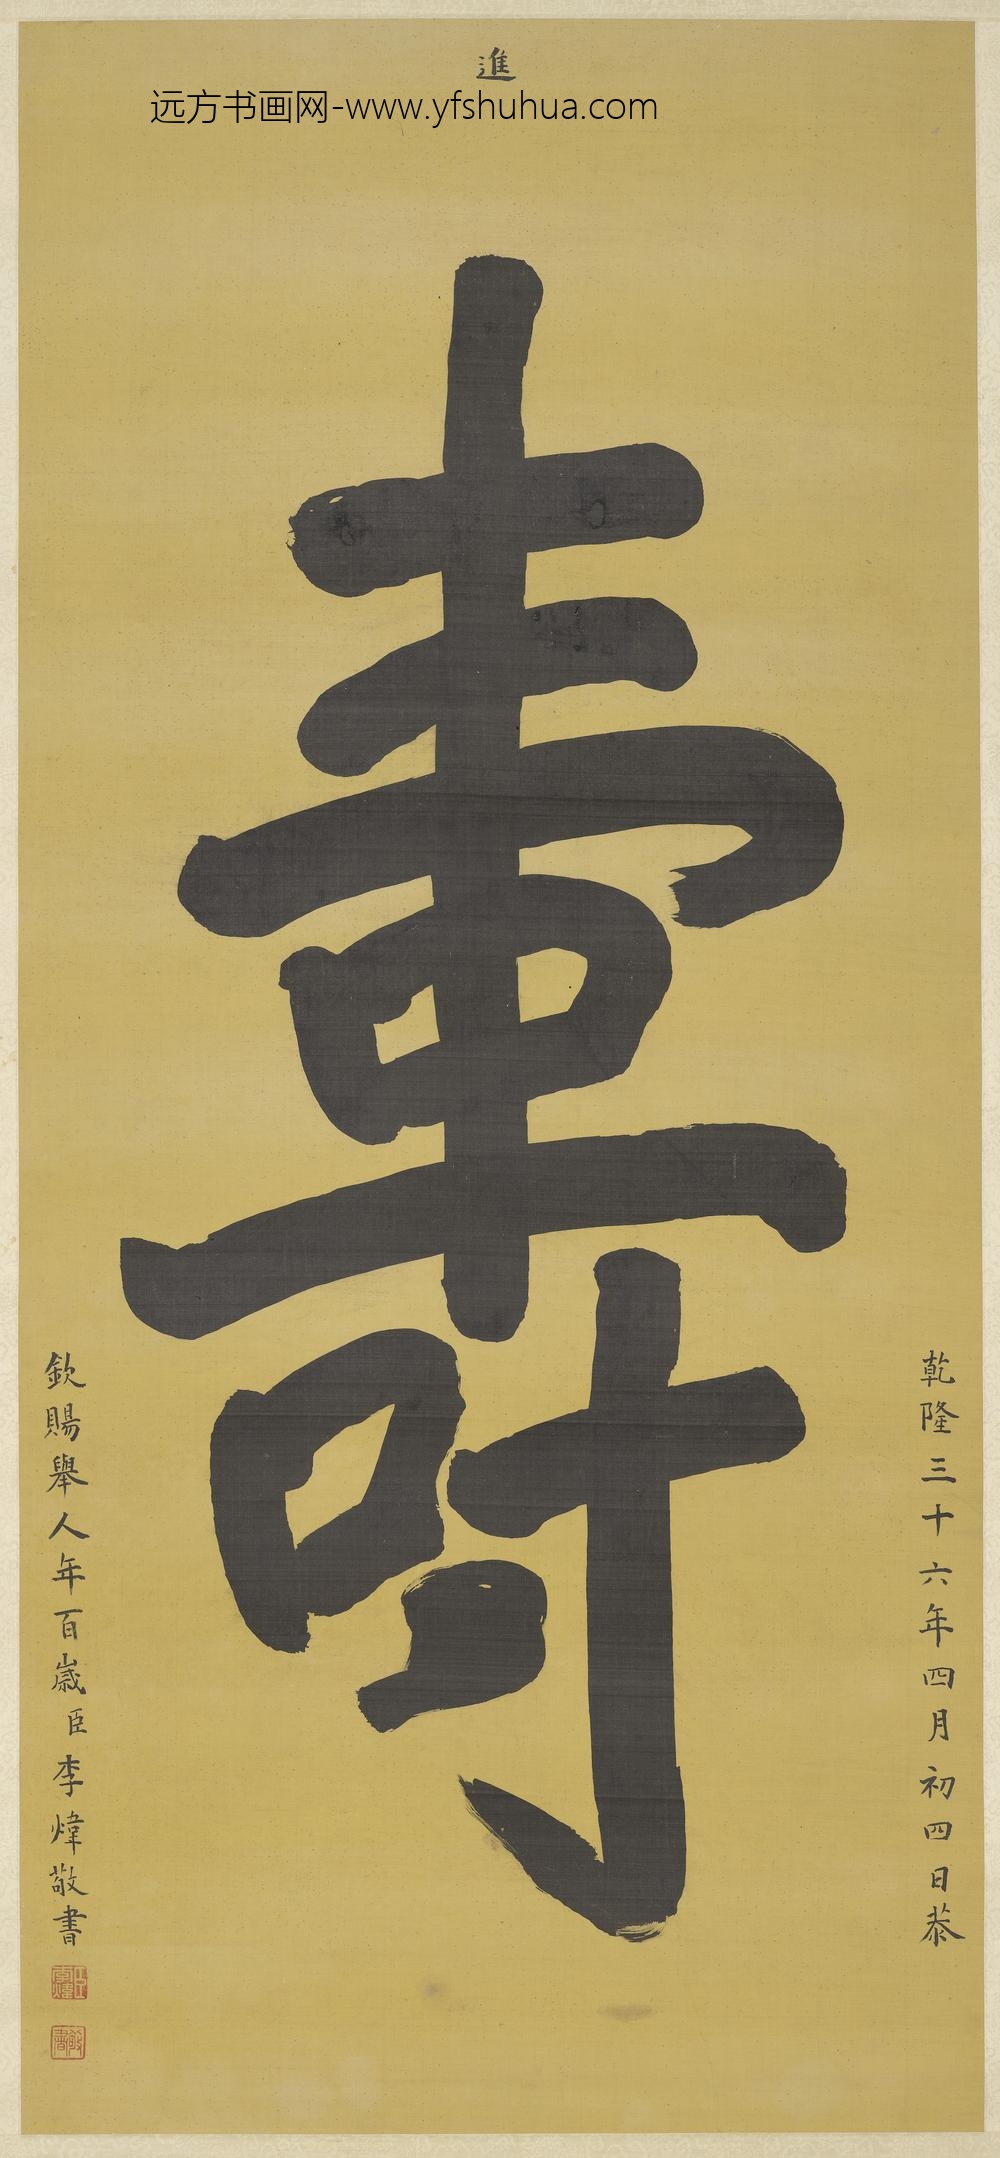 進
远方书画网-www.yfshuhua.com
乾隆三十六年四月初四日恭
壽
欽賜舉人年百歲臣李煒敬書